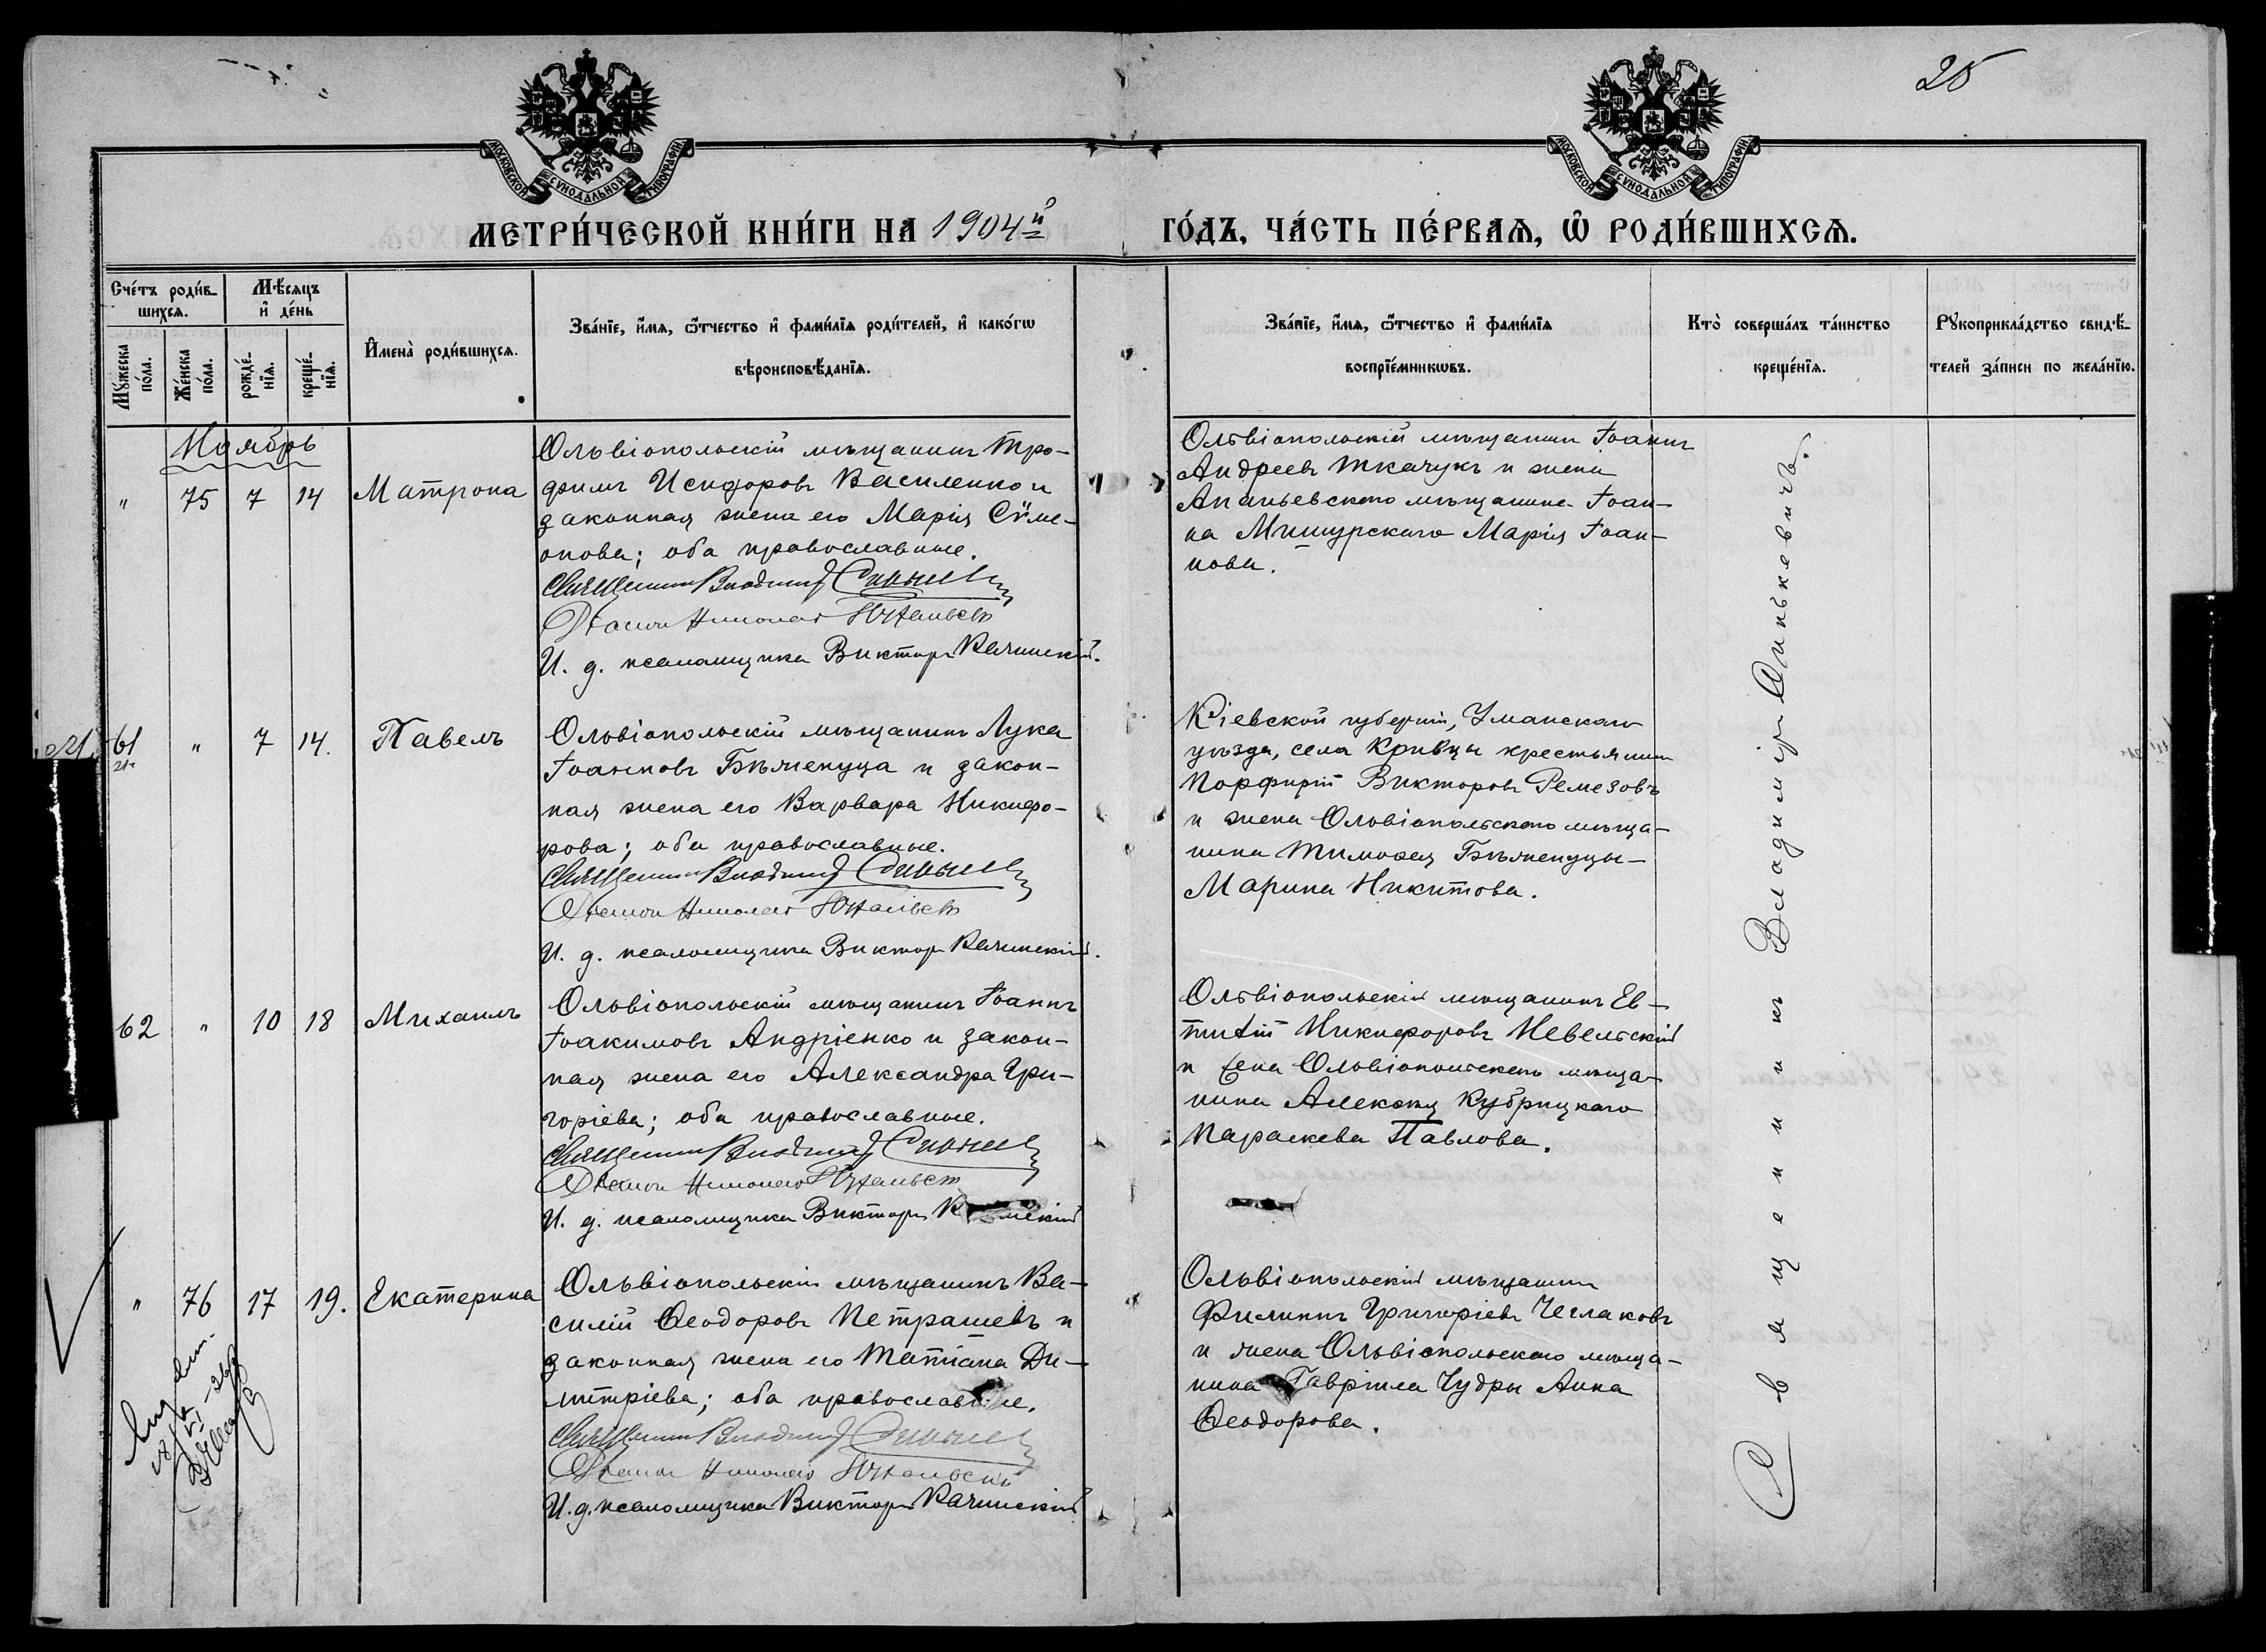 25
МОСКОВСКОЙ СУНОДАЛЬНОЙ ТИПОГРАФІИ
МОСКОВСКОЙ СУНОДАЛЬНОЙ ТИПОГРАФІИ
МЕТРИ́ЧЕСКОЙ КНИ́ГИ НА 1904й
ГО́ДЪ, ЧА́СТЬ ПЕ́РВАѦ, Ѽ РОДИ́ВШИХСѦ.
Сче́тъ роди́в-
шихсѧ.
Мꙋ́жеска по́ла.
Же́нска по́ла.
Мѣ́сѧцъ
и҆ де́нь
рожде́-нїѧ.
креще́-нїѧ.
И҆мена̀ роди́вшихсѧ.
Зва́нїе, и҆́мѧ, ѻ҆́тчество и҆ фами́лїѧ роди́телей, и҆ како́гѡ
вѣроисповѣ́данїѧ.
Зва́нїе, и҆́мѧ, ѻ҆́тчество и҆ фами́лїѧ
воспрїе́мникѡвъ.
Кто̀ соверша́лъ та́инство
креще́нїѧ.
Рꙋкоприкла́дство свидѣ́-
телей за́писи по жела́нїю.
Ноябрь
" 75 7 14 Матрона
Ольвіопольскій мѣщанинъ Тро-
фимъ Исидоровъ Василенко и
законная жена его Марія Сѵме-
онова; оба православные.
Священникъ Владимір
Діаконъ Николай
И. д. псаломщика Викторъ Качинскій.
Ольвіопольскій мѣщанинъ Іоаннъ
Андреевъ Ткачукъ и жена
Ананьевскаго мѣщанина Іоан-
на Мишурскаго Марія Іоан-
нова.
61 " 7 14. Павелъ
Ольвіопольскій мѣщанинъ Лука
Іоанновъ Бѣженуца и закон-
ная жена его Варвара Никифо-
рова; оба православные.
Священникъ Владимір
Діаконъ Николай
И. д. псаломщика Викторъ Качинскій.
Кіевской губерніи, Уманскаго
уѣзда, села Кривцы крестьянинъ
Порфирій Викторовъ Ремезовъ
и жена Ольвіопольскаго мѣща-
нина Тимоѳея Бѣженуцы-
Марина Никитова.
62 " 10 18 Михаилъ
Ольвіопольскій мѣщанинъ Іоаннъ
Іоакимовъ Андріенко и закон-
ная жена его Александра Гри-
горіева; оба православные.
Священникъ Владимір
Діаконъ Николай
И. д. псаломщика Викторъ
Ольвіопольскій мѣщанинъ Ев-
тихій Никифоровъ Невельскій
и жена Ольвіопольскаго мѣща-
нина Алексѣя Кубрицкаго
Параскева Павлова.
" 76 17 19. Екатерина
Ольвіопольскій мѣщанинъ Ва-
силій Ѳеодоровъ Петрашевъ и
законная жена его Татіана Ди-
митріева; оба православные.
Священникъ Владимір
Діаконъ Николай
И. д. псаломщика Викторъ Качинскій
Ольвіопольскій мѣщанинъ
Филиппъ Григоріевъ Чеглаковъ
и жена Ольвіопольскаго мѣща-
нина Гавріила Чудры Анна
Ѳеодорова.
Священникъ Владиміръ Синькевичъ.